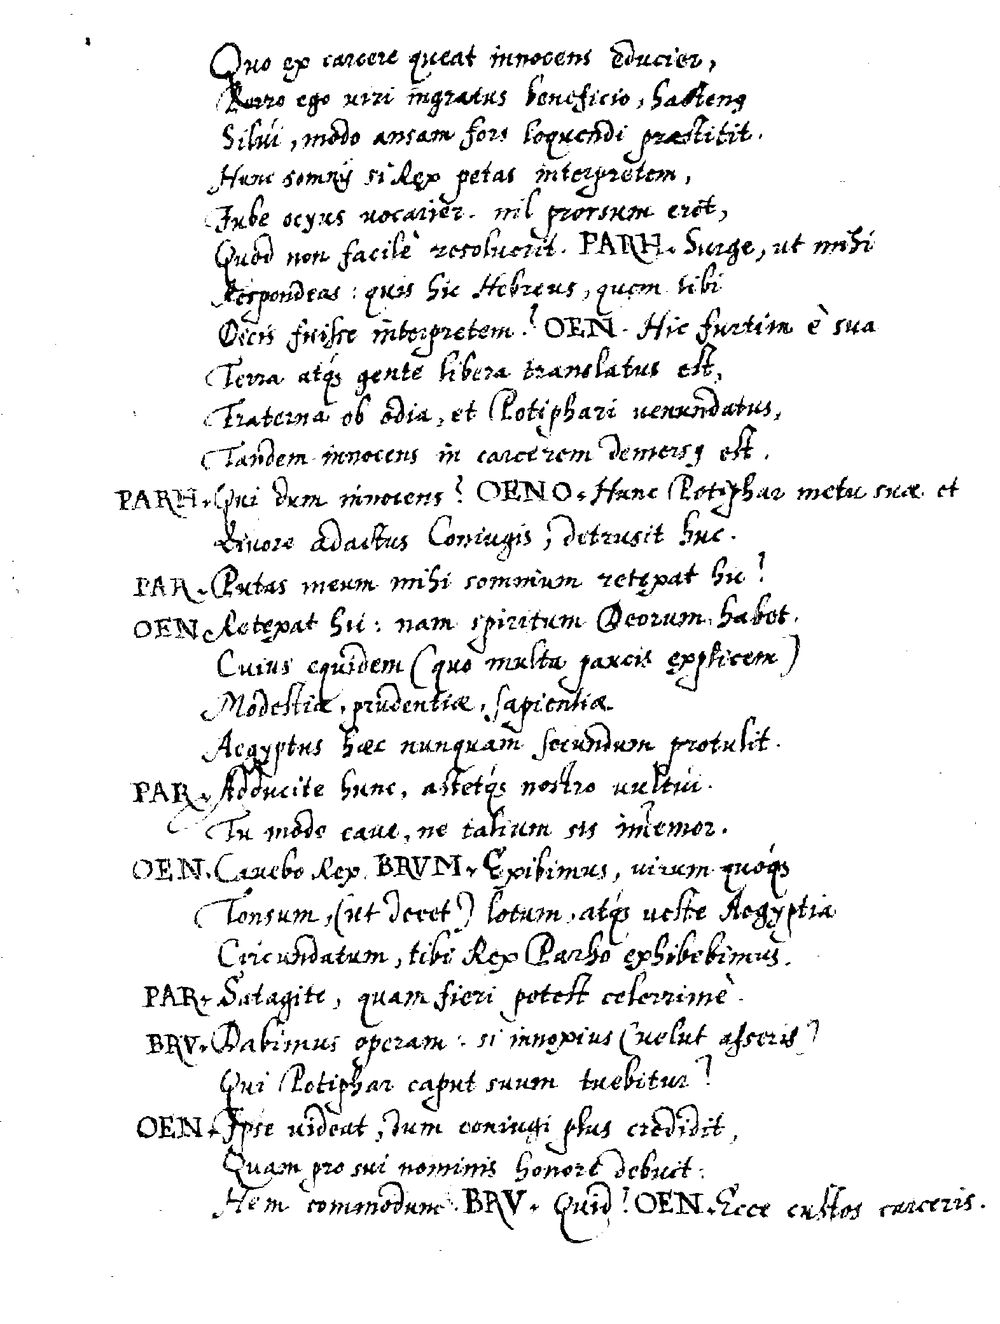 Quo ex carcere queat innocens educier,
Porro ego viri ingratus beneficio, hactenꝰ
Silui, modo ansam fors loquendi præstitit.
Hunc somnij si Rex petas interpretem,
Jube ocyus uocarier. nil prorsum erit,
Quod non facilè resoluerit. PARH. Surge, ut mihi
Respondeas: quis hic Hebreus, quem tibi
Dicis fuisse interpretem? OEN. Hic furtim è sua
Terra atq́ꝫ gente libera translatus est,
Fraterna ob odia, et Potiphari uenundatus,
Tandem innocens in carcerem demersꝰ est.
PARH. Qui dum innocens? OENO. Hunc Potiphar metu suæ et
Liuore adactus Coniugis, detrusit huc.
PAR. Putas meum mihi somnium retexat hic?
OEN. Retexat hic: nam spiritum Deorum habet.
Cuius equidem (quo multa paucis explicem)
Modestiæ, prudentiæ, sapientiæ
Aegyptus hæc nunquam secundum protulit.
PAR. Adducite hunc, astetq́ꝫ nostro uultui.
Tu modo caue, ne talium sis im̃emor.
OEN. Cauebo Rex. BRVM. Exibimus, uirum quoq́ꝫ
Tonsum, (ut decet) lotum, atq́ꝫ ueste Aegyptia
Circundatum, tibi Rex Parho exhibebimus.
PAR. Satagite, quam fieri potest celerrimè.
BRV. Dabimus operam: si innoxius (uelut asseris)
Qui Potiphar caput suum tuebitur?
OEN. Ipse uideat, dum coniugi plus credidit,
Quam pro sui nominis honore debuit:
Hem commodum. BRV. Quid? OEN. Ecce custos carceris.